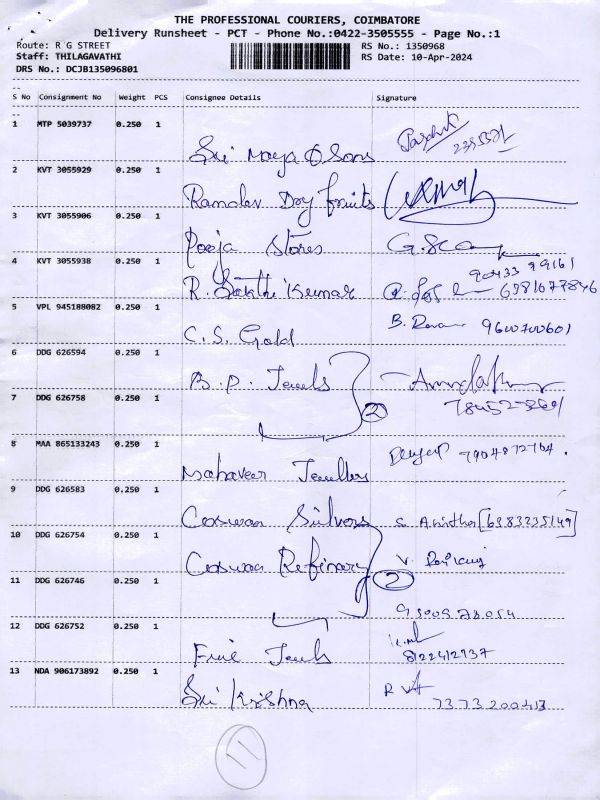 THE PROFESSIONAL COURIERS, COIMBATORE
Delivery Runsheet - PCT - Phone No.:0422-3505555 - Page No.:1
Route: R G STREET RS No.: 1350968
Staff: THILAGAVATHI RS Date: 10-Apr-2024
DRS No.: DCJB135096801
S No Consignment No Weight PCS Consignee Details Signature
1 MTP 5039737 0.250 1 Sri Maya & Sons
2 KVT 3055929 0.250 1 Ramdev Dry fruits
3 KVT 3055906 0.250 1 Pooja Stores
4 KVT 3055938 0.250 1 R. Sakthi Kumar
5 VPL 945188082 0.250 1 C. S. Gold B. 9600700601
6 DDG 626594 0.250 1 B. P. Jewels
7 DDG 626758 0.250 1 2
8 MAA 865133243 0.250 1 Mahaveer Jewellers
9 DDG 626583 0.250 1 Silvers S. Anitha [6383235149]
10 DDG 626754 0.250 1 Refinary V.
11 DDG 626746 0.250 1 2
12 DDG 626752 0.250 1 Fine Jewels 8122412937
13 NDA 906173892 0.250 1 Sri Krishna 7373200413
11